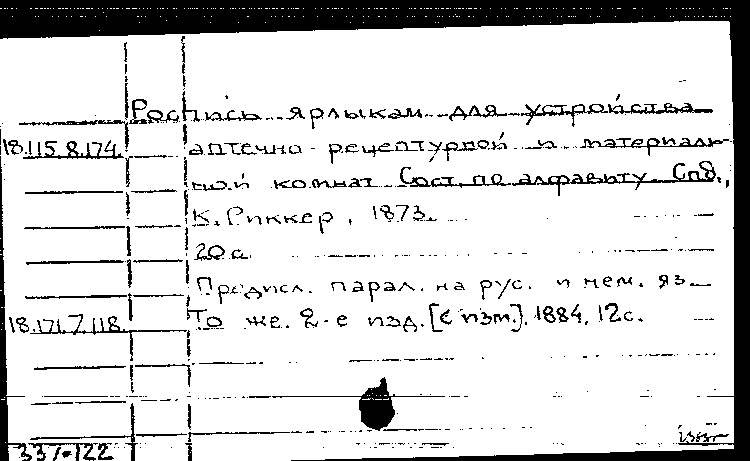 Роспись ярлыкам для устройства
18.115.8.174. аптечно-рецептурной и материаль-
ной комнат Сост. по алфавиту. Спб.,
К. Риккер, 1873.
20 с.
Предисл. парал. на рус. и нем. яз.
18.171.7.118. То же. 2-е изд. [с изм.]. 1884, 12с.
337-122